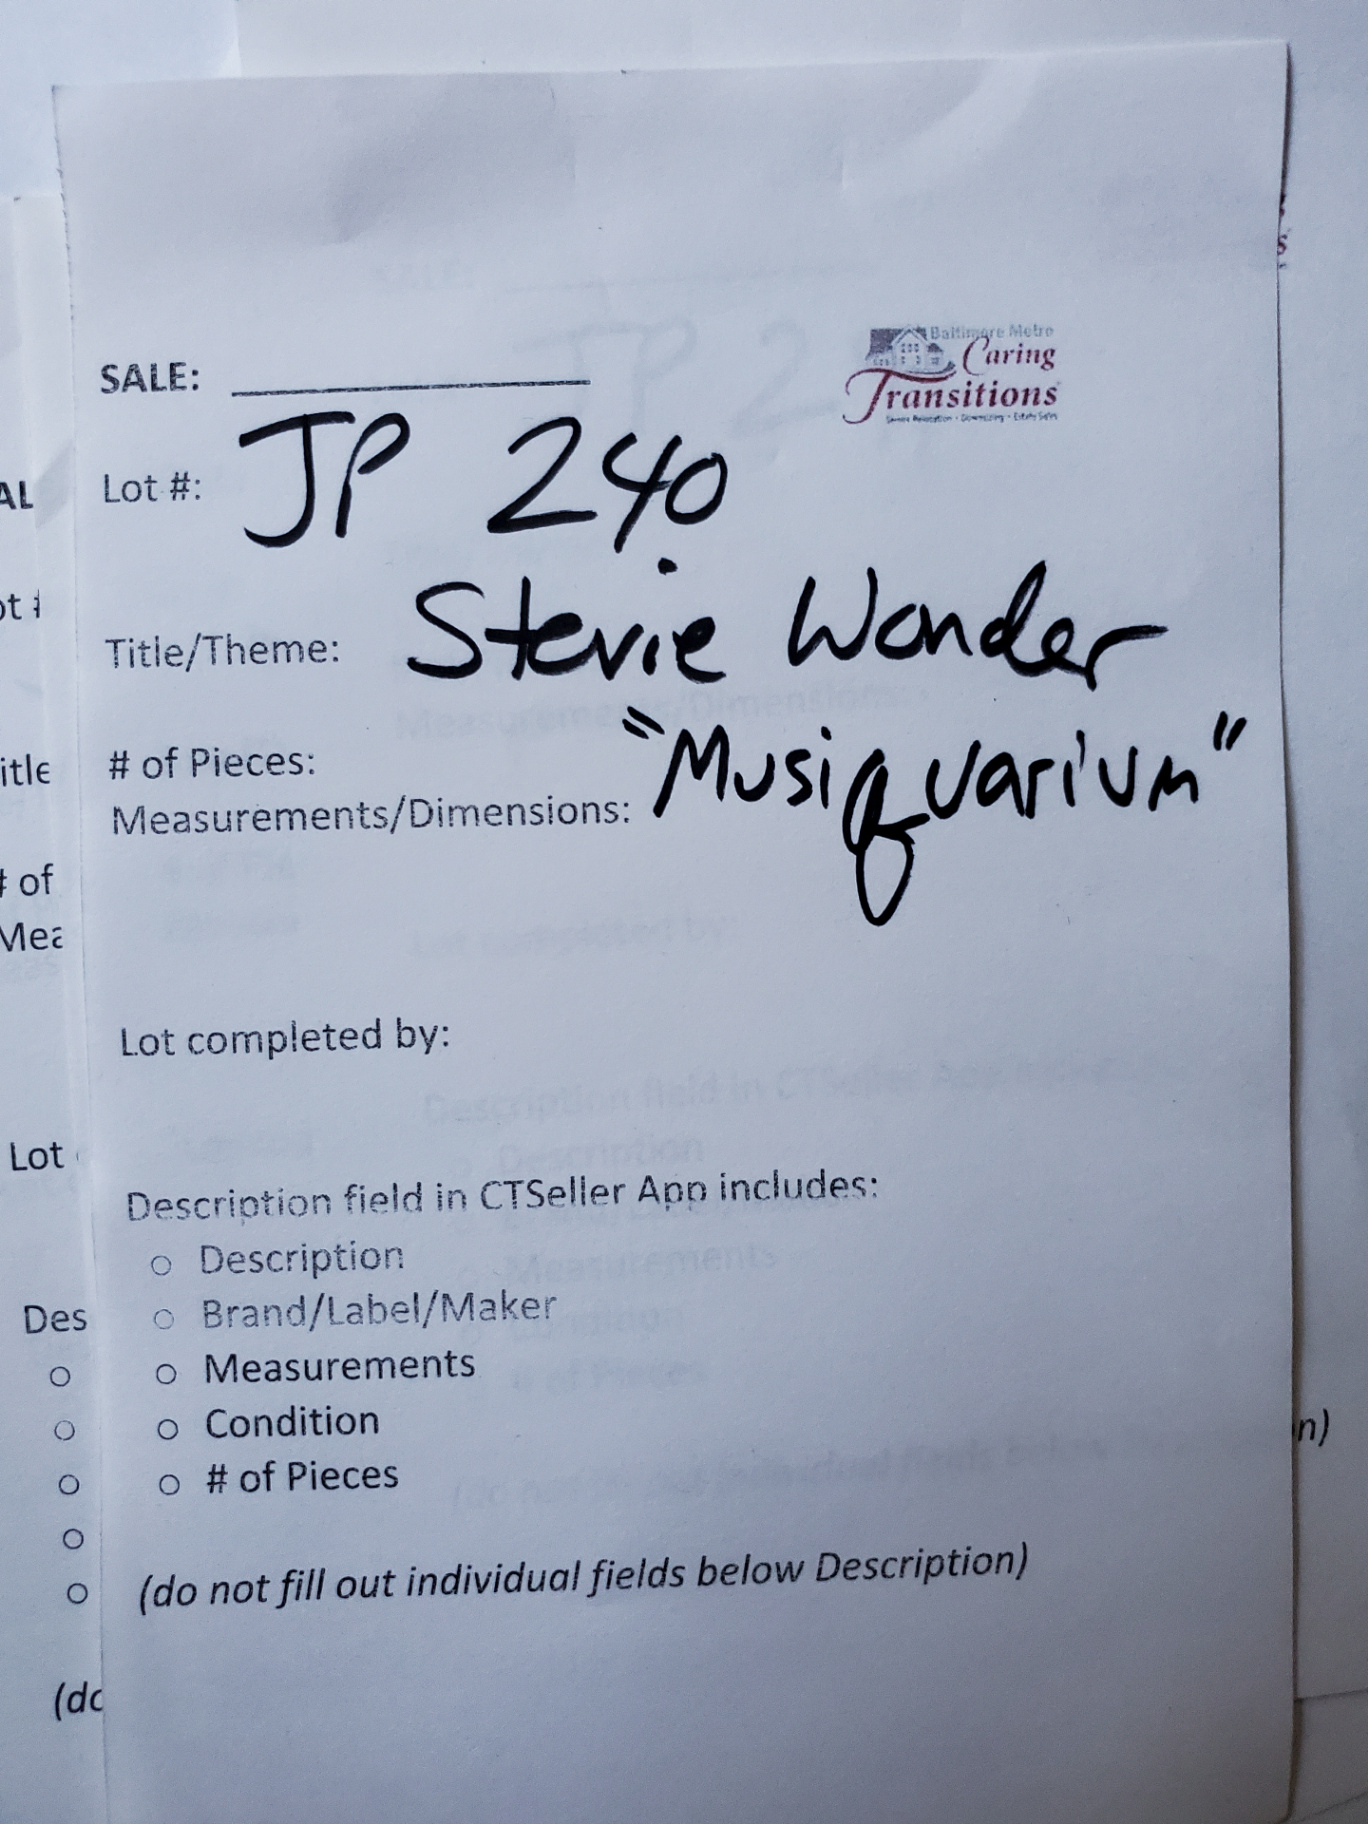 Baltimore Metro
Caring
Transitions
SALE:
Lot #: JP 240
Title/Theme: Stevie Wonder
"Musiquarium"
# of Pieces:
Measurements/Dimensions:
Lot completed by:
Description field in CTSeller App includes:
○ Description
○ Brand/Label/Maker
○ Measurements
○ Condition
○ # of Pieces
(do not fill out individual fields below Description)